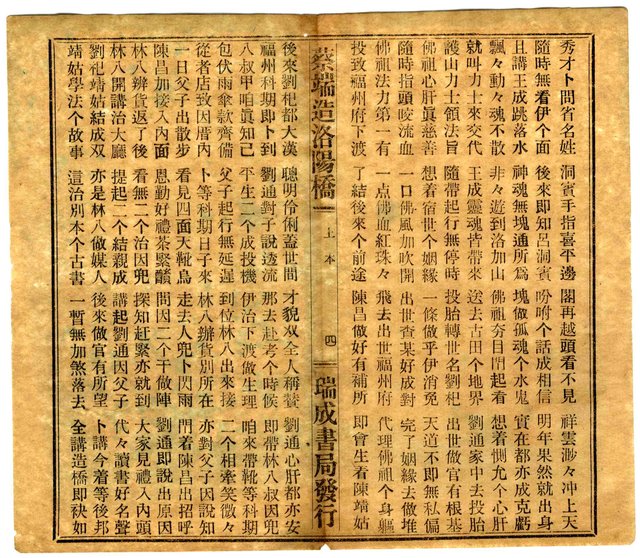 秀才卜問省名姓　洞賓手指喜平邊　閣再越頭看不見　祥雲渺々冲上天
隨時無看伊个面　後來即知呂洞賓　吩咐个話成相信　明年果然就出身
且講王成跳落水　神魂無塊通所為　塊做孤魂个水鬼　實在都亦成克虧
飄々動々魂不散　非々遊到洛加山　佛祖夯目閂起看　想着惻允个心肝
就叫力士來交代　王成靈魂皆帶來　送去古田个地界　劉通家中去投胎
護山力士領法旨　隨帶起行無停時　投胎轉世名劉杞　出世做官有根基
佛祖心肝眞慈善　想着宿世个姻緣　一條做乎伊消免　天道不即無私偏
隨時指頭咬流血　一口佛風加吹開　出世查某好成對　完了姻緣去做堆
佛祖法力第一有　一点佛血紅珠々　飛去出世福州府　代理佛祖个身軀
投致福州府下渡　了結後來个前途　陳昌做好有補所　即會生看陳靖姑
蔡端造洛陽橋　上本　四　瑞成書局發行
後來劉杞都大漢　聰明伶俐蓋世間　才貌双全人稱贊　劉通心肝都亦安
福州科期即卜到　劉通對子說透流　那去赴考个時候　即帶林八叔因兜
八叔甲咱眞知己　平生二个成投機　伊治下渡做生理　咱來帶靴等科期
包伏雨傘款齊備　父子起行無延遲　到位林八出來接　二个相牽笑微々
從者店致因厝內　卜等科期日子來　林八辦貨別所在　亦對父子因說知
一日父子出散步　看見四面天靴烏　走去人兜卜閃雨　門着陳昌出招呼
陳昌加接入內面　恩勤好禮茶緊繽　問因二个干做陣　劉通即說出原因
林八辦貨返了後　看無二个治因兜　探知赶緊亦就到　大家見禮入內頭
林八開講治大廳　提起二个結親成　講起劉通因父子　代々讀書好名聲
劉祀靖姑結成双　亦是林八做媒人　後來做官有所望　卜講今着等後邦
靖姑學法个故事　這治別本个古書　一暫無加煞落去　全講造橋即袂如